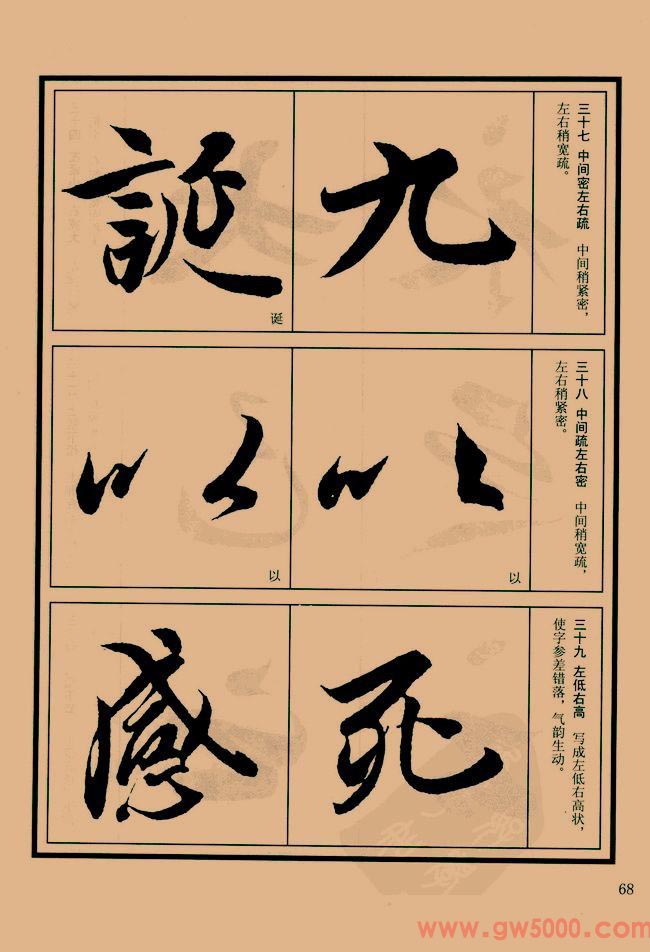 三十七 中间密左右疏 中间稍紧密，
左右稍宽疏。
九
誕
诞
三十八 中间疏左右密 中间稍宽疏，
左右稍紧密。
以
以
以
以
三十九 左低右高 写成左低右高状，
使字参差错落，气韵生动。
死
感
68
www.gw5000.com